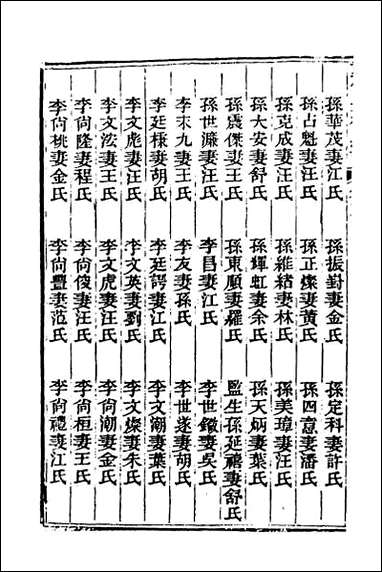 孫華茂妻江氏 孫振對妻金氏 孫定科妻許氏
孫占魁妻汪氏 孫正燦妻黃氏 孫四意妻潘氏
孫克成妻汪氏 孫維結妻林氏 孫美璋妻汪氏
孫大安妻舒氏 孫輝虹妻余氏 孫天炳妻葉氏
孫震傑妻王氏 孫東順妻羅氏 監生孫延禧妻舒氏
孫世濂妻汪氏 李昌妻江氏 李世鐓妻吳氏
李末九妻王氏 李友妻孫氏 李世遂妻胡氏
李廷樑妻胡氏 李廷諤妻江氏 李文潮妻葉氏
李文彪妻汪氏 李文英妻劉氏 李文燦妻朱氏
李文㳒妻王氏 李文虎妻汪氏 李尙潮妻金氏
李尙隆妻程氏 李尙俊妻汪氏 李尙桓妻王氏
李尙桃妻金氏 李尙豐妻范氏 李尙禮妻江氏